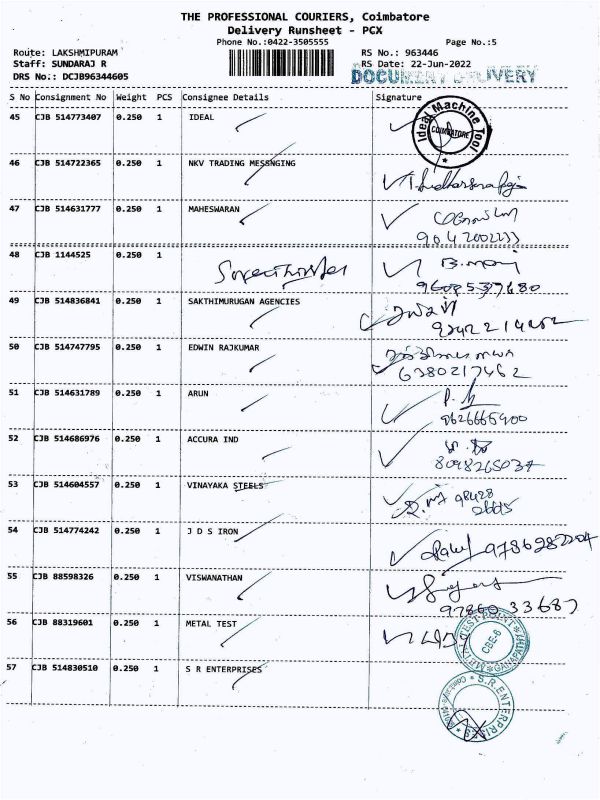 THE PROFESSIONAL COURIERS, Coimbatore
Delivery Runsheet - PCX
Phone No.:0422-3505555
Page No.:5
Route: LAKSHMIPURAM
RS No.: 963446
Staff: SUNDARAJ R
RS Date: 22-Jun-2022
DRS No.: DCJB96344605
DOCUMENT DELIVERY
S No Consignment No Weight PCS Consignee Details Signature
45 CJB 514773407 0.250 1 IDEAL
Ideal Machine Tool
COIMBATORE
46 CJB 514722365 0.250 1 NKV TRADING MESSNGING
47 CJB 514631777 0.250 1 MAHESWARAN
9042002233
48 CJB 1144525 0.250 1
B.mani
9600537680
49 CJB 514836841 0.250 1 SAKTHIMURUGAN AGENCIES
50 CJB 514747795 0.250 1 EDWIN RAJKUMAR
6380217462
51 CJB 514631789 0.250 1 ARUN
9626665900
52 CJB 514686976 0.250 1 ACCURA IND
8098265037
53 CJB 514604557 0.250 1 VINAYAKA STEELS
98428
26615
54 CJB 514774242 0.250 1 J D S IRON
9786282204
55 CJB 88598326 0.250 1 VISWANATHAN
97860 33687
56 CJB 88319601 0.250 1 METAL TEST
CBE-6
57 CJB 514830510 0.250 1 S R ENTERPRISES
S.R.ENTERPRISES